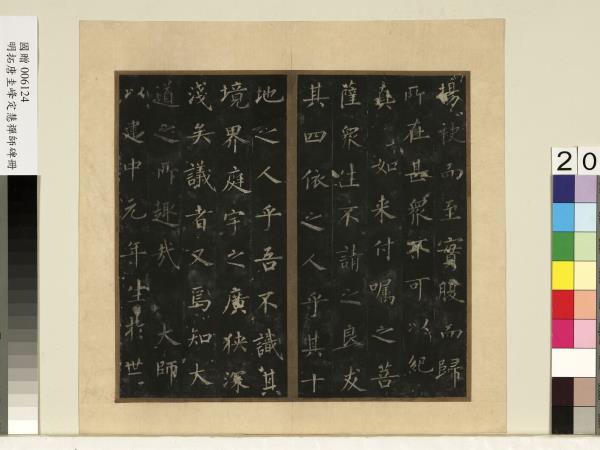 國贈 006124
明拓唐圭峰定慧禪師碑冊
揚袂而至實腹而歸
所在甚眾不可以紀
真如來付囑之菩
薩眾生不請之良友
其四依之人乎其十
地之人乎吾不識其
境界庭宇之廣狹深
淺矣議者又焉知大
道之所趣哉 大師
以建中元年生於世
20